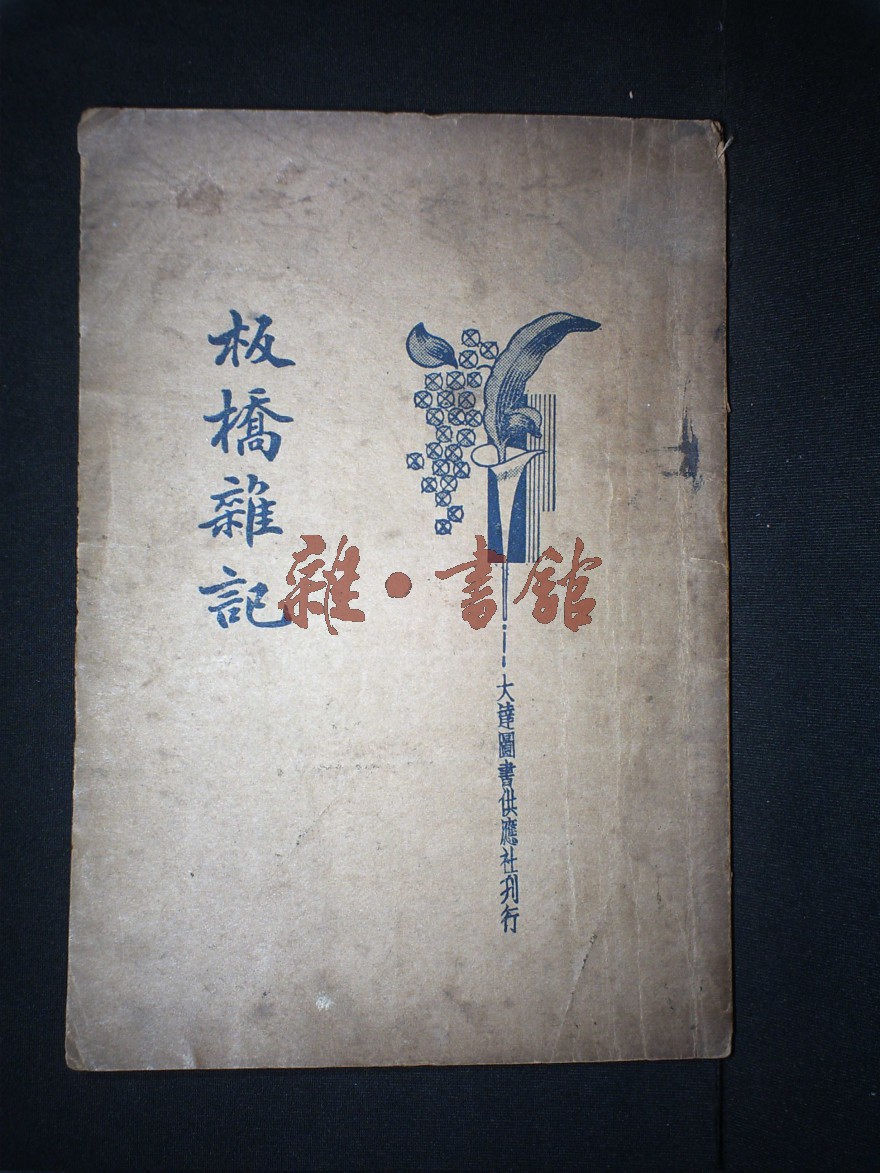 板橋雜記
雜·書館
大達圖書供應社刋行